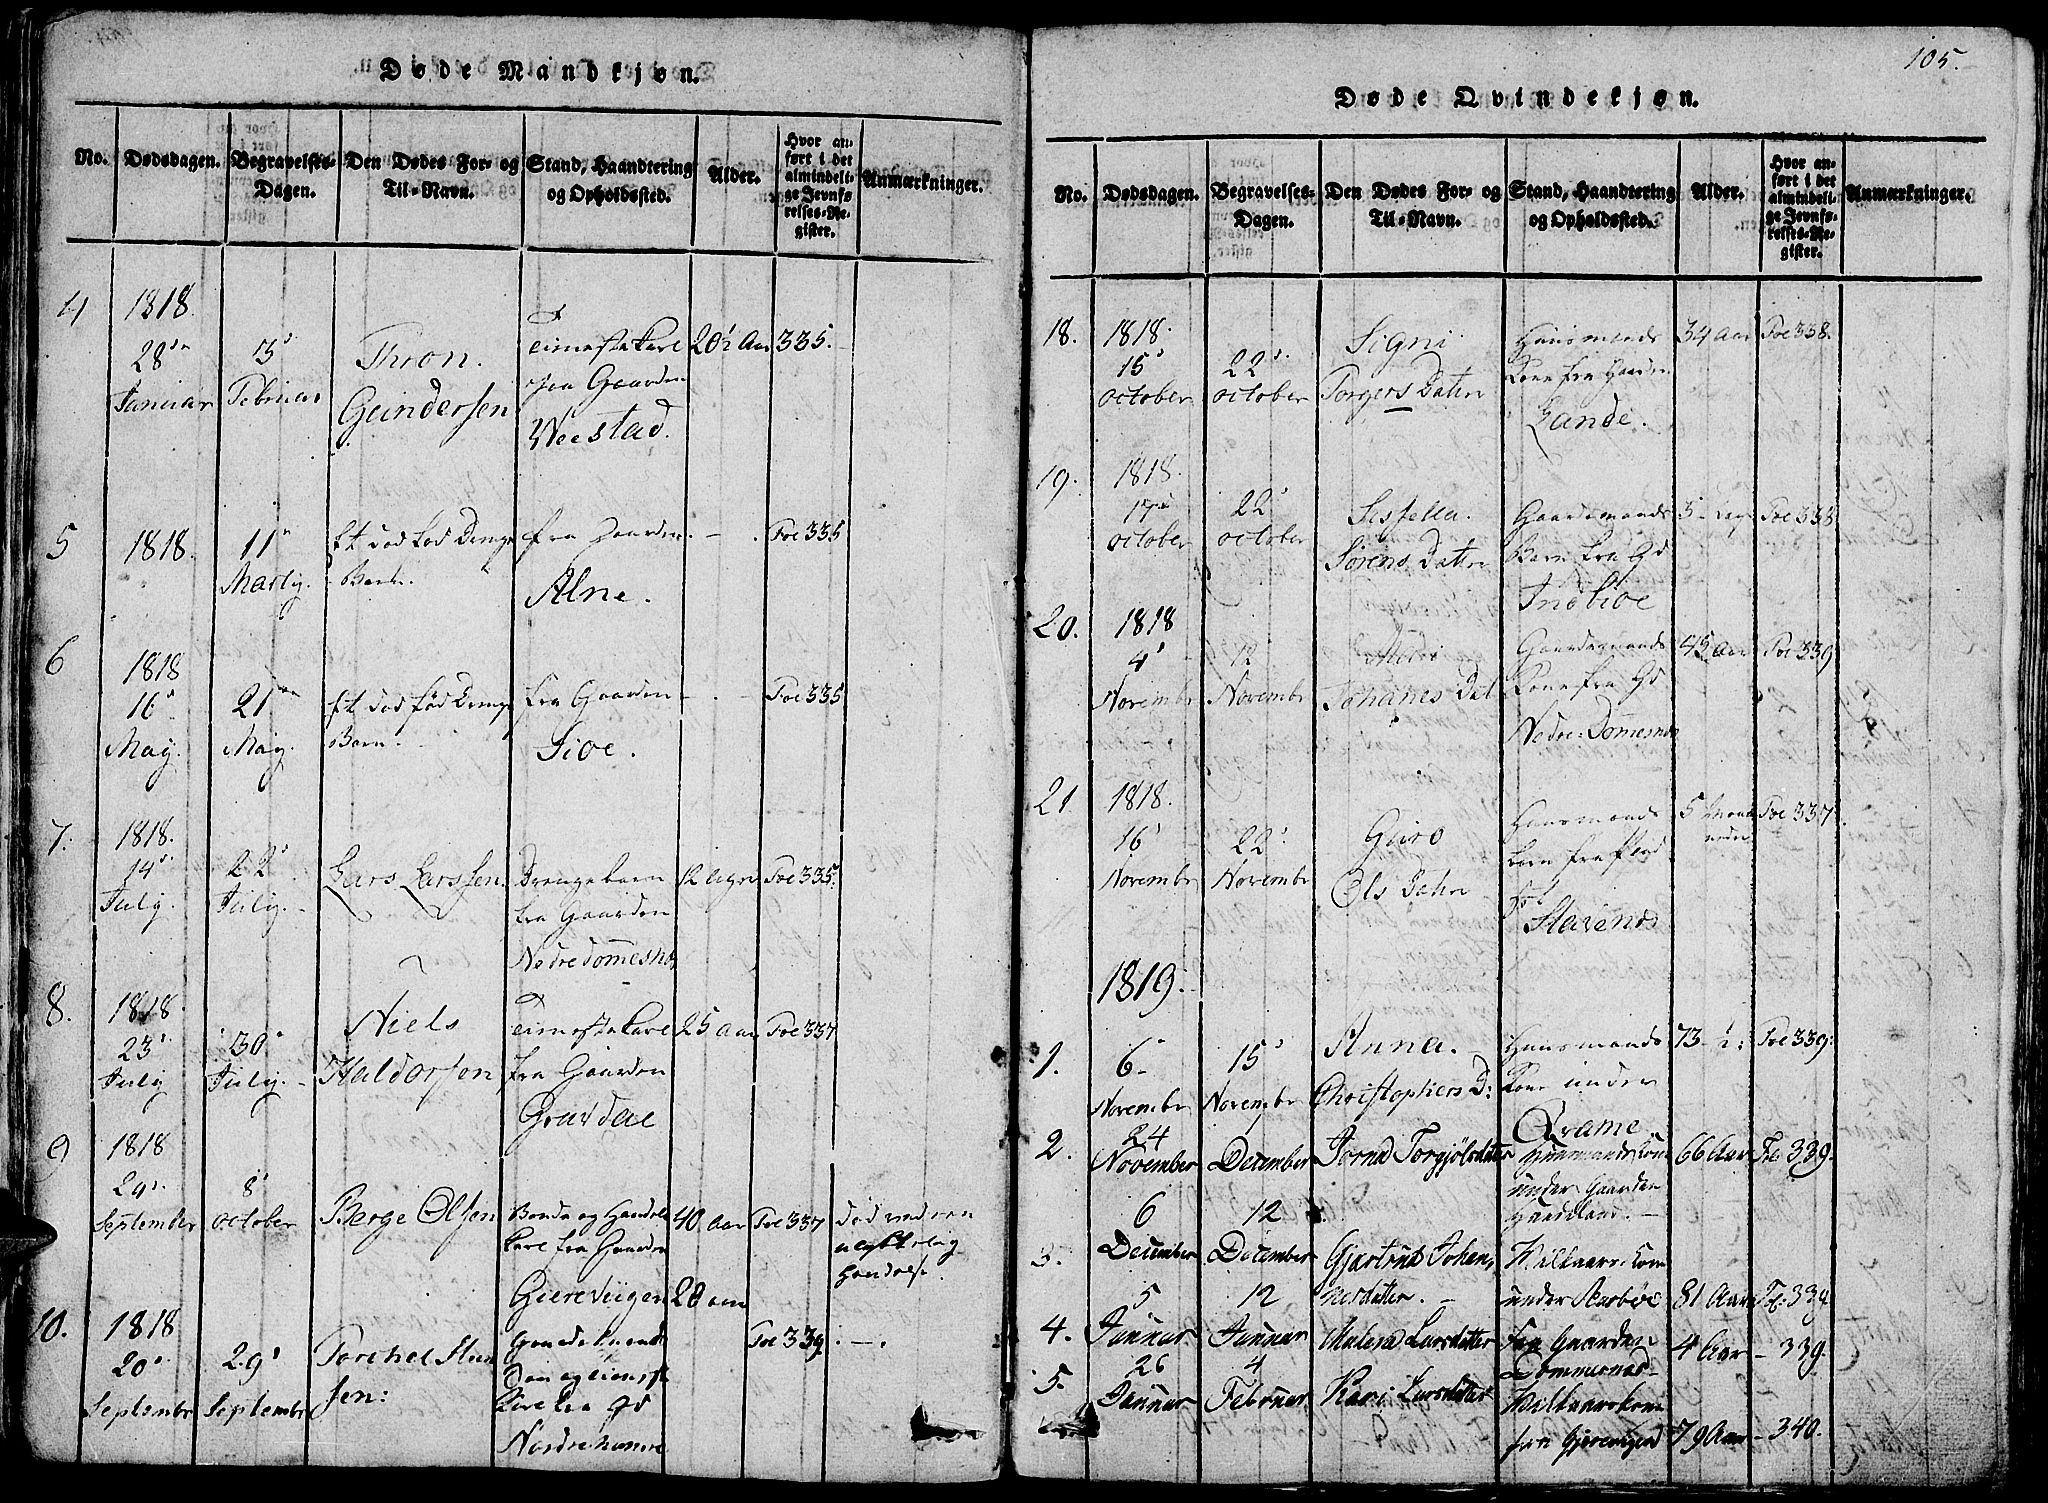 Døde Mandkjøn.
No.
Dødsdagen.
Begravelses-Dagen.
Den Dødes For- og Til-Navn.
Stand, Haandtering og Opholdssted.
Alder.
Hvor anført i det almindelige Jevnførelses-Register.
Anmærkninger.
4
1818.
28de Januar
3d Februar
Thron
Gundersen
Tienestekarl
paa Gaarden
Weestad.
20½ Aar
335.
5
1818.
11te
Martij.
et död föd Drenge
Barn.
fra Gaarden
Alne.
Foe 335
6
1818
16d
May.
21de
May.
et död föd Drenge
Barn.
fra Gaarden
Sioe.
Foe 335
7.
1818.
14d
Julij.
22d
Julij.
Lars Larssen
Drengebarn
fra Gaarden
Nedre Domesnes
12 Uger
Foe 335.
8.
1818
23d
Julij
30d
Julij.
Niels
Haldorsen
Tienestekarl
fra Gaarden
Gravdal
25 Aar
Foe 337
9
1818
29d
September
8d
October
Berge Olsen
Bonde og Handels
karl fra Gaarden
Gierevigen
40 Aar
Foe 337
död ved en
ulykkelig
Hændelse.
10.
1818
20d
Septembr
29d
Septembr
Torchel
sen:
fra Gd
Nordrehamre
28 Aar
Foe 339
105.
Døde Qvindekjøn.
No.
Dødsdagen.
Begravelses-Dagen.
Den Dødes For- og Til-Navn.
Stand, Haandtering og Opholdssted.
Alder.
Hvor anført i det almindelige Jevnførelses-Register.
Anmærkninger.
18.
1818.
15d
October
22d
October
Signi
Torgers Datter
Huusmands
Kone fra Gaarden
Lande.
34 Aar
Foe 338.
19.
1818.
17d
October
22d
October
Sissela
Sörens Datter
Gaardmands
Barn fra Gd
Indbioe
3 Dage
Foe 338
20.
1818
4d
Novembr
12
Novembr
Johanes Dat
Gaardmands
Kone fra Gd
Nedre Domesnes
45 Aar
Foe 339
21
1818.
16d
Novembr
22d
Novembr
Guro
Ols Datter
Huusmands
barn fra Plads
Stavenes
5 Maaneder
Foe 337
1819.
1.
6
Novembr
15d
Novembr
Anna
Christophers D:
Huusmands
Kone under
Qvame
73 ½:
Foe 339:
2.
24
November
December
Torgjölsdatter
Huusmands Kone
under Gaarden
66 Aar
Foe 339.
3.
6
December
12
December
Gjertrud Johan,
nesdatter.
Wilkaars Kone
under Aarböe
81 Aar
Fo: 334
4.
5
Januar
12
Januar
Malena Larsdatter
fra Gaarden
Dommersnes
4 Aar
339.
5.
26
Januar
4
Februar
Kari Larsdatter
Wilkaarskone
fra Gjerevigen
79 Aar
340.